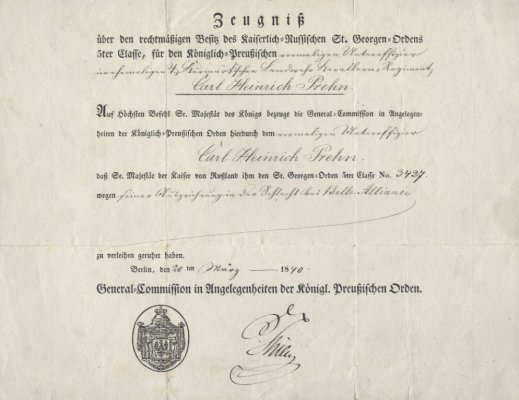 Zeugniß
über den rechtmäßigen Besitz des Kaiserlich-Russischen St. Georgen-Ordens
5ter Classe, für den Königlich-Preußischen vormaligen Unteroffizier
im ehemaligen 4. Kurmärkschen Landwehr Kavallerie Regiment,
Carl Heinrich Prehn.
Auf Höchsten Befehl Sr. Majestät des Königs bezeuge die General-Commission in Angelegen-
heiten der Königlich-Preußischen Orden hierdurch dem vormaligen Unteroffizier
Carl Heinrich Prehn.
daß Se. Majestät der Kaiser von Rußland ihm den St. Georgen-Orden 5ter Classe No. 3427
wegen seiner Auszeichnung in der Schlacht bei Belle-Alliance
zu verleihen geruhet haben.
Berlin, den 20 ten März 1840.
General-Commission in Angelegenheiten der Königl. Preußischen Orden.